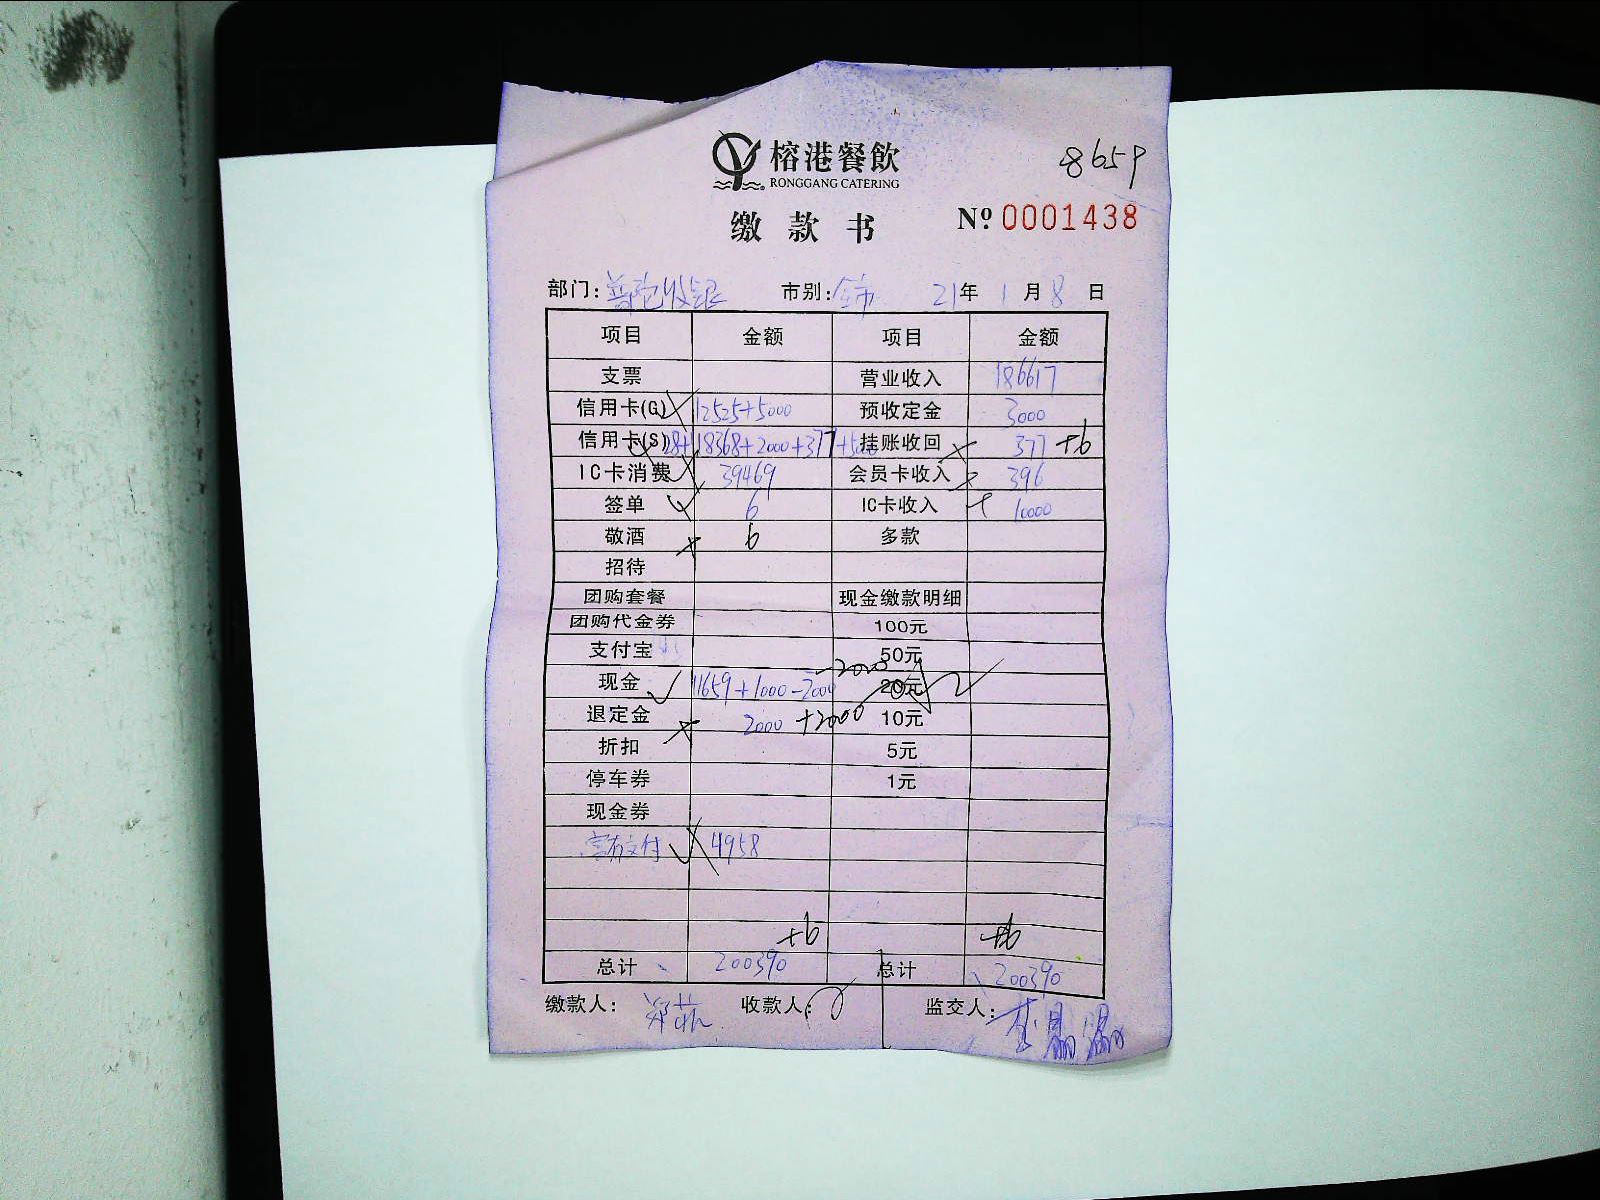 榕港餐飲
RONGGANG CATERING
8659
缴款书 Nº 0001438
部门: 普陀收银 市别: 全市 21年 1月 8日
项目 金额 项目 金额
支票 营业收入 186617
信用卡(G) 12525+5000 预收定金 3000
信用卡(S) 118368+2000+377+5000 挂账收回 377 +6
IC卡消费 39469 会员卡收入 396
签单 6 IC卡收入 10000
敬酒 6 多款
招待
团购套餐 现金缴款明细
团购代金券 100元
支付宝 50元
现金 11659+1000-2000 -2000 20元
退定金 2000 +2000 10元
折扣 5元
停车券 1元
现金券
4958
+6 +6
总计 200390 总计 200390
缴款人: 收款人: 监交人: